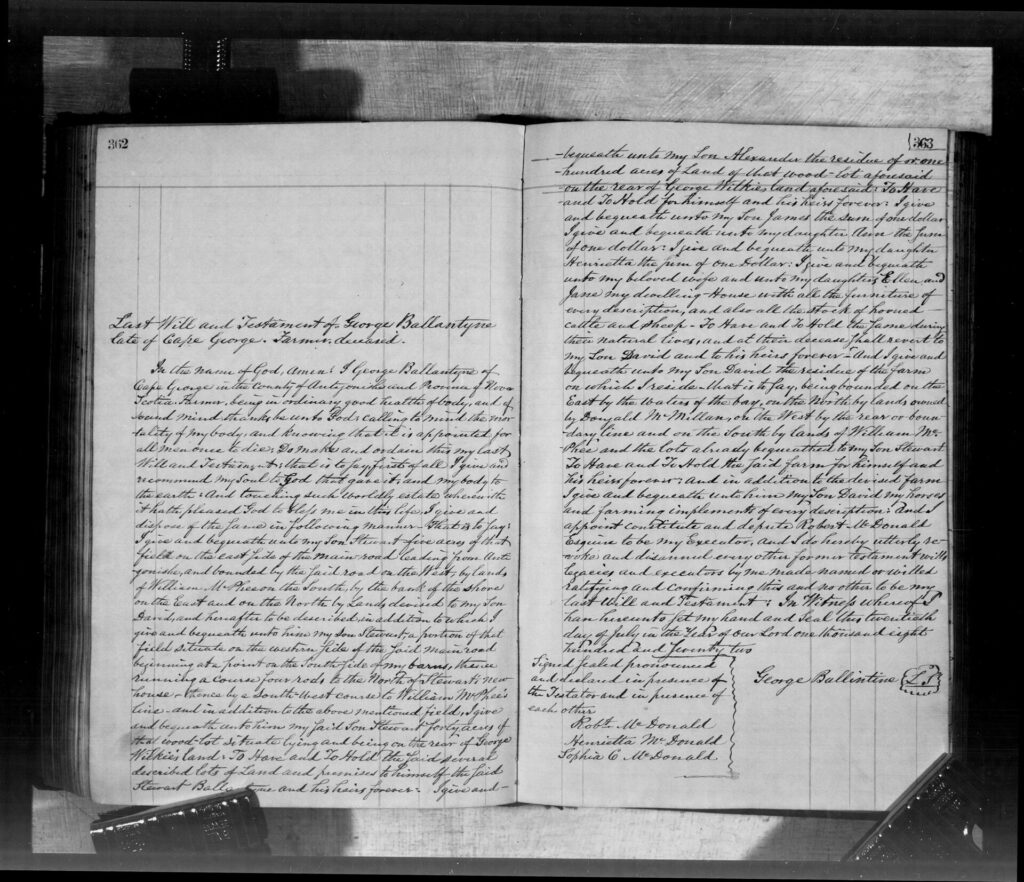 362
Last Will and Testament of George Ballantyne
late of Cape George. Farmer, deceased.
In the name of God, Amen: I George Ballantyne of
Cape George in the County of Antigonish and Province of Nova
Scotia Farmer, being in ordinary good health of body, and of
sound mind thanks be unto God: calling to mind the mor-
tality of my body, and knowing that it is appointed for
all men once to die: Do make and ordain this my last
Will and Testament: that is to say, first of all I give and
recommend my Soul to God that gave it, and my body to
the earth: And touching such worldly estate wherewith
it hath pleased God to bless me in this life, I give and
dispose of the same in following manner. That is to say:
I give and bequeath unto my Son Stewart five acres of that
field on the east side of the main road leading from Anti-
gonish, and bounded by the said road on the West, by lands
of William McPhee on the South, by the bank of the shore
on the East and on the North by Lands devised to my Son
David, and hereafter to be described, in addition to which I
give and bequeath unto him my Son Stewart, a portion of that
field situate on the western side of the said main road
beginning at a point on the South side of my barns, thence
running a course four rods to the North of Stewart's new
house - thence by a South-West course to William McPhee's
line - and in addition to the above mentioned field, I give
and bequeath unto him my said Son Stewart forty acres of
that wood-lot situate lying and being on the rear of George
Wilkie's land: To Have and To Hold the said several
described lots of Land and premises to himself the said
Stewart Ballantyne and his heirs forever: I give and-
363
-bequeath unto my Son Alexander the residue of or one
-hundred acres of Land of that wood-lot aforesaid
-on the rear of George Wilkies land aforesaid: To Have
-and To Hold for himself and his heirs forever: I give
and bequeath unto my Son James the sum of one dollar
I give and bequeath unto my daughter Ann the sum
of one dollar: I give and bequeath unto my daughter
Henrietta the sum of one Dollar: I give and bequeath
unto my beloved wife and unto my daughters Ellen and
Jane my dwelling House with all the furniture of
every description, and also all the stock of horned
cattle and sheep - To Have and To Hold the same during
their natural lives, and at their decease, shall revert to
my Son David and to his heirs forever - And I give and
bequeath unto my Son David the residue of the farm
on which I reside - that is to say, being bounded on the
East by the Waters of the bay, on the North by lands owned
by Donald McMillan, on the West by the rear or boun-
dary line and on the South by lands of William Mc-
Phee and the lots already bequeathed to my Son Stewart
To Have and To Hold the said farm for himself and
his heirs forever: And in addition to the devised farm
I give and bequeath unto him my Son David my horses
and farming implements of every description: And I
appoint constitute and depute Robert McDonald
Esquire to be my Executor, and I do hereby utterly re-
voke and disannul every other former testament wills
Legacies and executors by me made named or willed
Ratifying and confirming this and no other to be my
last Will and Testament: In Witness whereof I
have hereunto set my hand and Seal this twentieth
day of July in the Year of our Lord one thousand eight
hundred and seventy two
Signed sealed pronounced
and declared in presence of
the Testator and in presence of
each other
George Ballintine L.S
Robt. McDonald
Henrietta McDonald
Sophia C McDonald